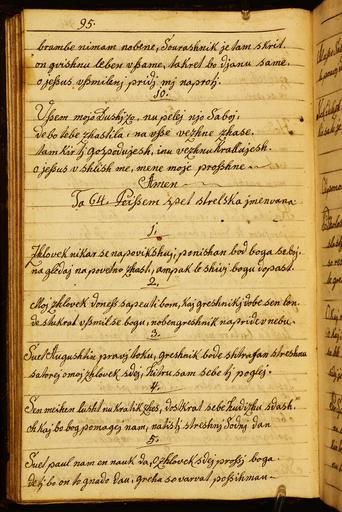 95.
brambe nimam nobene, Sourashnik je tam skrit.
on gvishnu leben vsame, takret bo djanu same.
o jesus vsmileni pridi mi naproti.
10.
Vsem mojo dushizo, nu pelej njo Saboj,
de bo tebe zhastila, na vse vezhne zhase.
tam kir ti gospodujesh, inu vezhnu kralujesh.
o jesus vshlish me, mene moje proshne
Amen
Ta 64. Peissem spet strelska jmenvana
1.
Zhlovek nikar se napovikshuj, ponishan bod boga se boj.
na gledaj na posvetno zhast, ampak le skuoj bogu dopast.
2.
Moj zhlovek doness sapeuti bom, kaj greshnik
de stukrat vsmil se bogu, noben greshnik na pride v nebu.
3.
Suet Augushtin pravi toku, greshnik bode shtrafan streshnu
satorej o moj zhlovek sdej, hitru sam sebe ti poglej.
4.
Sen meihen lusht nu kratik zhas, dostkrat sebe hudizhu sdash.
oh kaj bo bog pomagej nam, na tisti streshni Sodni dan
5.
Suet paul nam en nauk da, o zhlovek sdej prossi boga
de ti bo on to gnado dau, greha se varvat possihmau